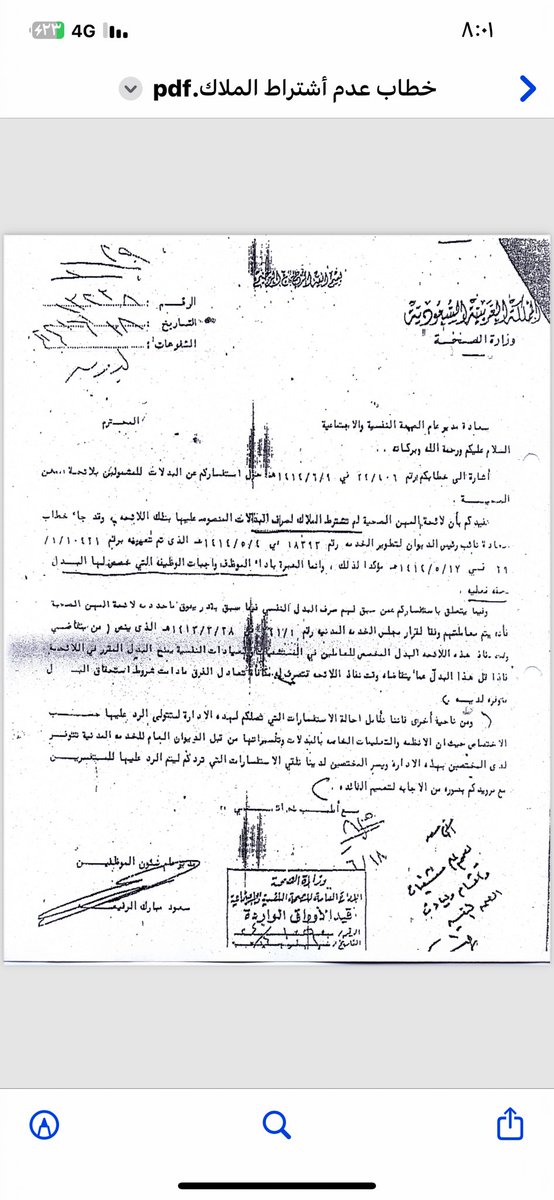 ٨:٠١
4G
٢٣
خطاب عدم أشتراط الملاك.pdf
بسم الله الرحمن الرحيم
المملكة العربية السعودية
وزارة الصحة
الرقم :
التاريخ :
المشفوعات :
سعادة مدير عام الصحة النفسية والاجتماعية المحترم
السلام عليكم ورحمة الله وبركاته ..
أشارة الى خطابكم رقم ٢٢/٤٠٦ في ١٤١٤/٦/٩هـ حول استفساركم عن البدلات للمشمولين بلائحة المهن
الصحية .
نفيدكم بأن لائحة المهن الصحية لم تشترط الملاك لصرف البدلات المنصوص عليها بتلك اللائحه وقد جاء خطاب
سعادة نائب رئيس الديوان لتطوير الخدمه رقم ١٨٣٩٣ في ١٤١٤/٥/٤هـ الذى تم تعميمه برقم ١/١٠٤٢١/
٢٩ في ١٤١٤/٥/١٧هـ مؤكدا لذلك ، وانما العبرة باداء الموظف واجبات الوظيفه التي خصص لها البدل
بصفه فعليه
وفيما يتعلق باستفساركم عمن سبق لهم صرف البدل النفسي فيما سبق باكثر مما حدده لائحة المهن الصحية
فأنه يتم معاملتهم وفقا لقرار مجلس الخدمه المدنيه رقم ٢١/١ ١٤١٣/٣/٢٨هـ الذى ينص ( من يتقاضى
وقت نفاذ هذه اللائحه البدل المخصص للعاملين في المستشفيات والعيادات النفسية يمنح البدل المقرر في اللائحة
فاذا قل هذا البدل عما يتقاضاه وقت نفاذ اللائحه تصرف له مكافأة تعادل الفرق مادامت شروط استحقاق البدل
متوفره لديه )
ومن ناحية أخرى فاننا نأمل احالة الاستفسارات التي تصلكم لهذه الادارة لتتولى الرد عليها حسب
الاختصاص حيث ان الانظمه والتعليمات الخاصه بالبدلات وتفسيراتها من قبل الديوان العام للخدمه المدنية تتوفر
لدى المختصين بهذه الادارة ويسر المختصين لدينا تلقي الاستفسارات التي تردكم ليتم الرد عليها للمستفسرين
مع تزويدكم بصوره من الاجابه لتعميم الفائده .
مع أطيب تحياتي ،،
٦/١٨
مدير عام شئون الموظفين
سعود مبارك
وزارة الصحة
الإدارة العامة للصحة النفسية والإجتماعية
قيد الأوراق الواردة
الرقم :
التاريخ :